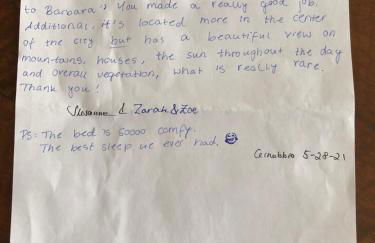 to Barbara, You made a really good job.
Additional, it's located more in the center
of the city but has a beautiful view on
mountains, houses, the sun throughout the day
and overall vegetation, what is really rare
Thank you!
& Zarah & Zoe
PS: The bed is soooo comfy.
The best sleep we ever had.
Cernobbio 5-28-21